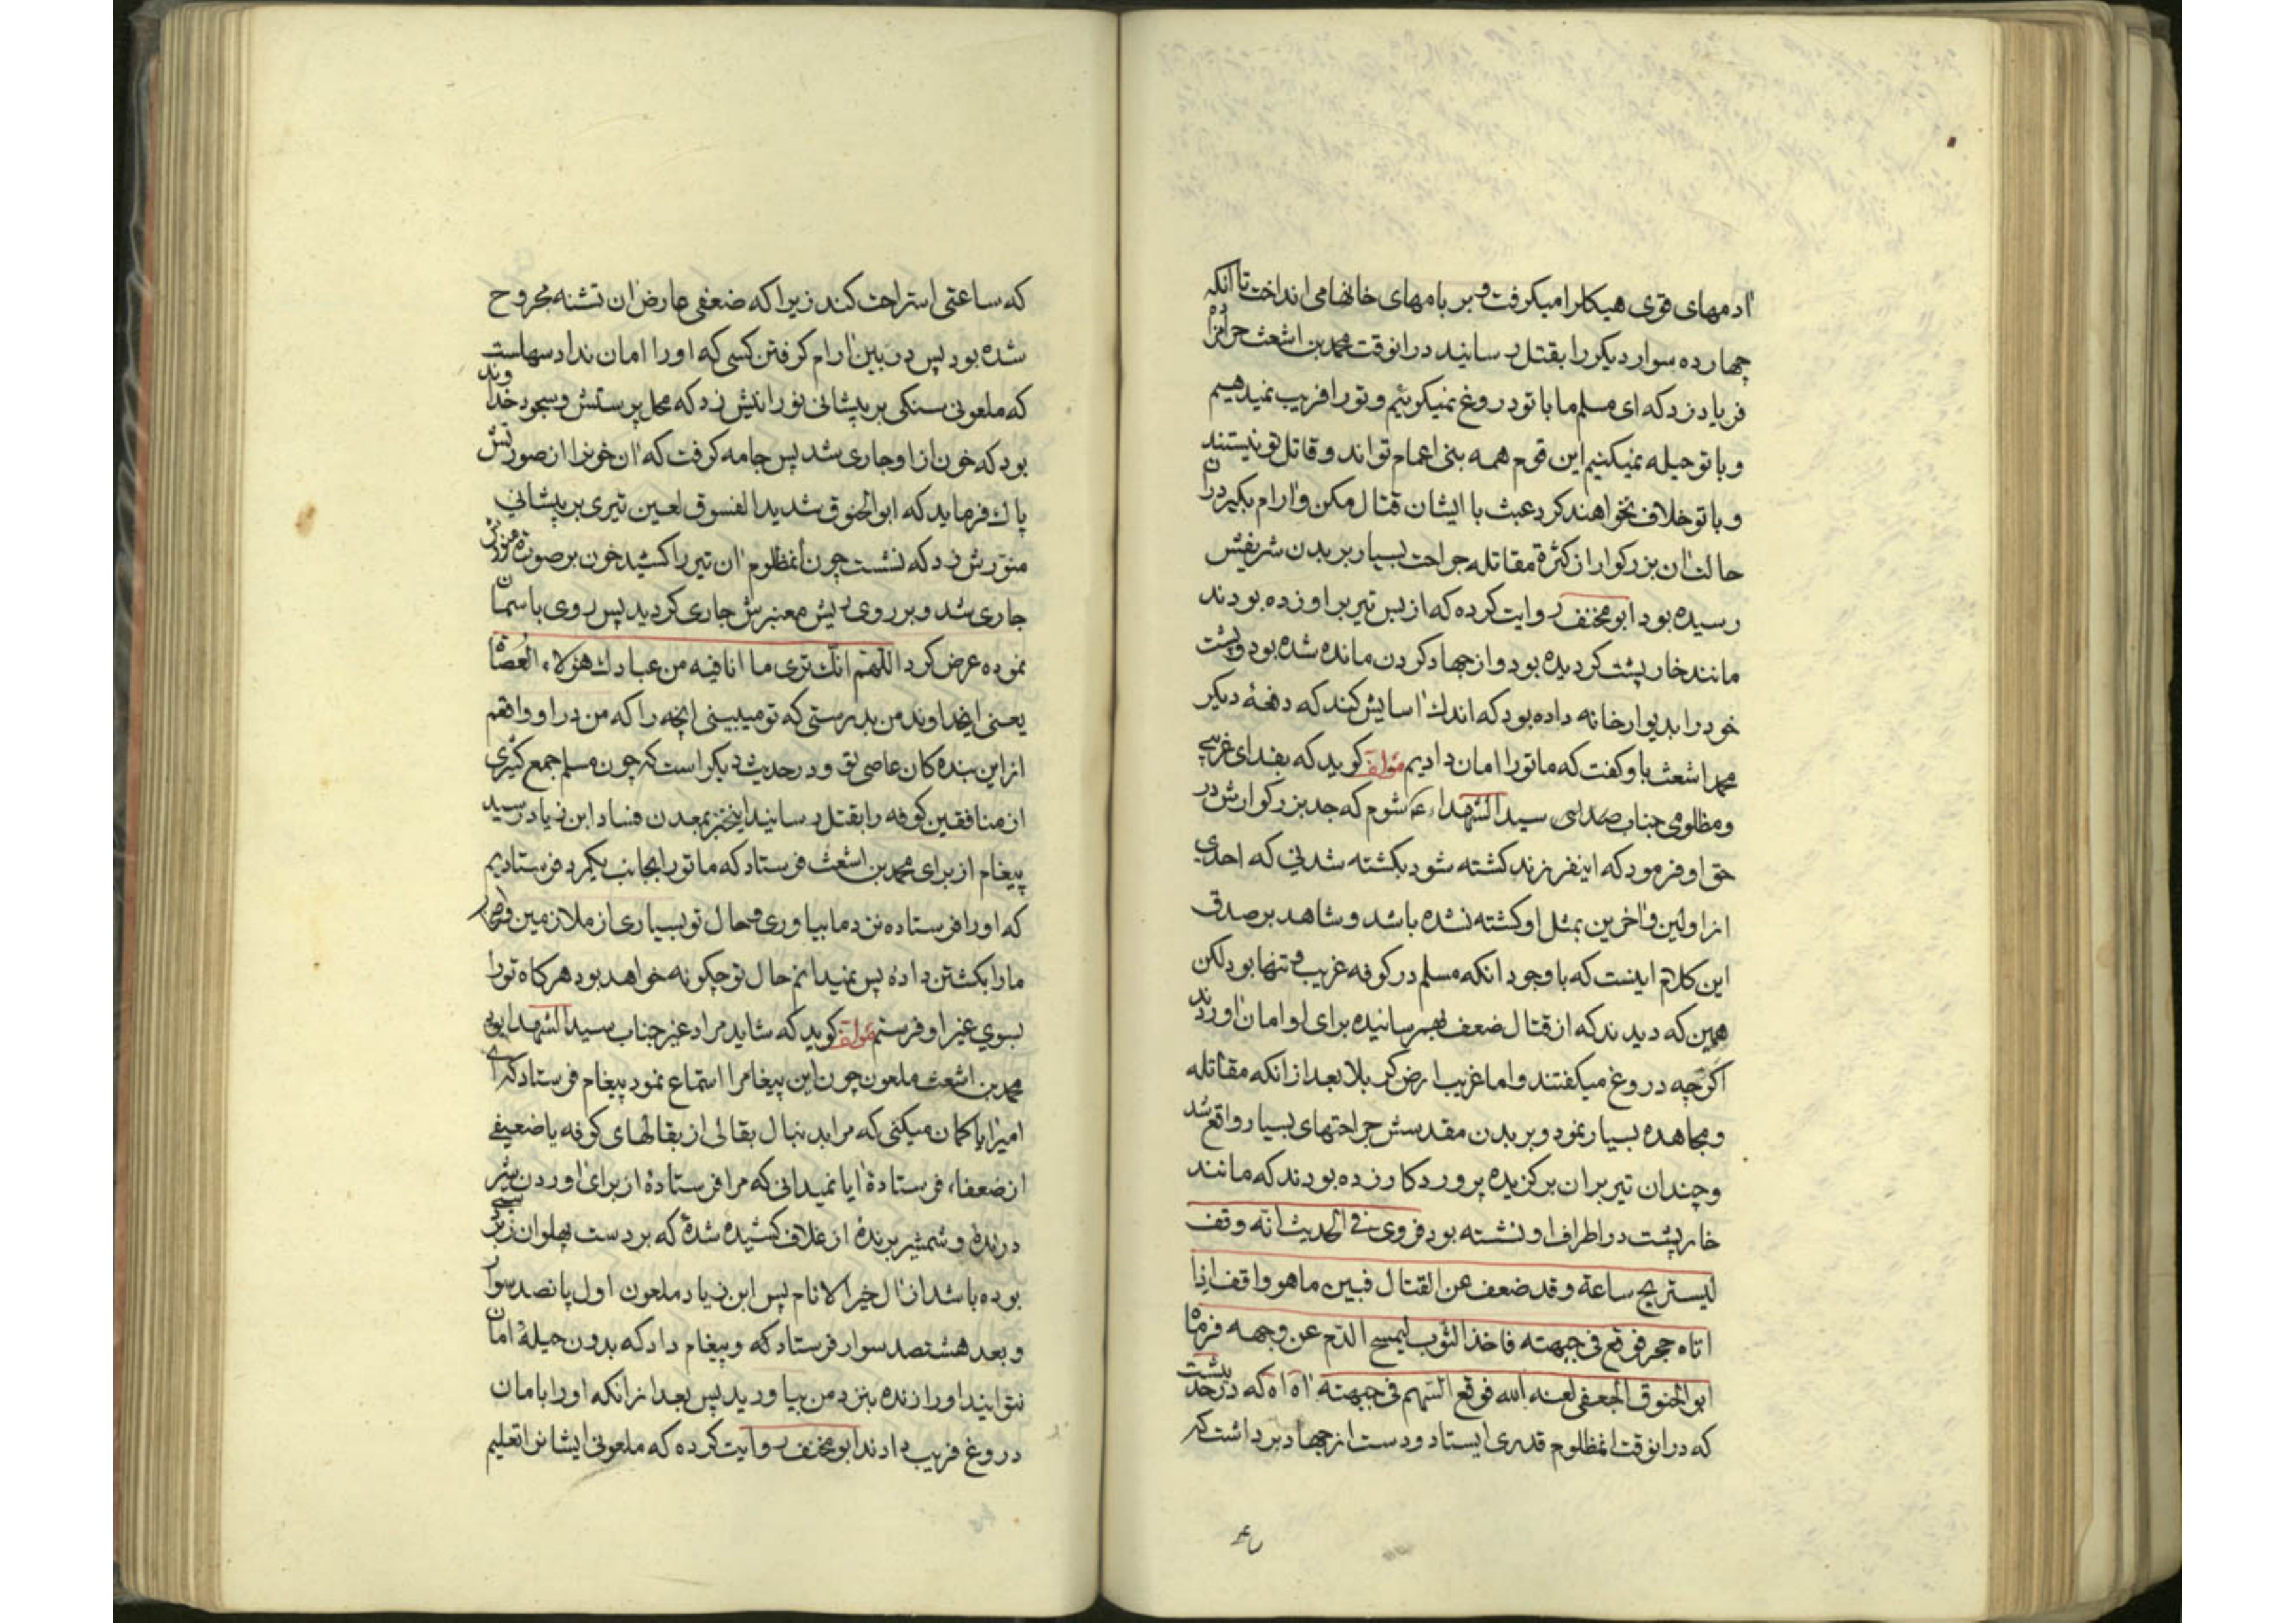 ادمهای قوی هیکلرا میکرفت و بر بامهای خانها می انداخت تا انکه
چهارده سوار دیکر را بقتل رسانید درانوقت محمد بن اشعث حرامزاده
فریاد زد که ای مسلم ما با تو دروغ نمیکوئیم و تو را فریب نمیدهیم
و با تو حیله نمیکنیم این قوم همه بنی اعمام تو اند و قاتل تو نیستند
و با تو خلاف نخواهند کرد عبث با ایشان قتال مکن و ارام بکیر دران
حالت ان بزرکوار از کثرة مقاتله جراحت بسیار بر بدن شریفش
رسیده بود ابو مخنف روایت کرده که از بس تیر بر او زده بودند
مانند خارپشت کردیده بود و از جهاد کردن مانده شده بود و پشت
خود را بدیوار خانه داده بود که اندك اسایش کند که دفعهٔ دیکر
محمد اشعث باو کفت که ما تو را امان دادیم مؤلف کوید که بفدای غریبی
و مظلومی جناب سید الشهداء شوم که جد بزرکوارش در
حق او فرمود که اینفرزند کشته شود بکشته شدنی که احدی
از اولین و اخرین بمثل او کشته نشده باشد و شاهد بر صدق
این کلام اینست که با وجود انکه مسلم در کوفه غریب و تنها بود لکن
همین که دیدند که از قتال ضعف بهم رسانیده برای او امان اوردند
اکرچه دروغ میکفتند و اما غریب ارض کربلا بعد از انکه مقاتله
و مجاهده بسیار نمود و بر بدن مقدسش جراحتهای بسیار واقع شد
و چندان تیر بر ان برکزیده پروردکار زده بودند که مانند
خارپشت در اطراف او نشسته بود فروی فی الحدیث انه وقف
لیستریح ساعة و قد ضعف عن القتال فبین ما هو واقف اذا
اتاه حجر فوقع فی جبهته فاخذ الثوب لیمسح الدم عن وجهه فرماه
ابو الحنوق الجعفی لعنه الله فوقع السهم فی جبهته اه اه که در حدیثست
که درانوقت انمظلوم قدری ایستاد و دست از جهاد برداشت که
که ساعتی استراحت کند زیرا که ضعفی عارض ان تشنه مجروح
شده بود پس در بین ارام کرفتن کسی که او را امان نداد سهلست
که ملعونی سنکی بر پیشانی نورانیش زد که محل پرستش و سجود خداوند
بود که خون از او جاری شد پس جامه کرفت که ان خونرا از صورتش
پاك فرماید که ابو الحنوق شدید الفسوق لعین تیری بر پیشانی
منورش زد که نشست چون انمظلوم ان تیر را کشید خون بر صورة منورش
جاری شد و بر روی ریش معنبرش جاری کردید پس روی باسمان
نموده عرض کرد اللهم انك تری ما انا فیه من عبادك هؤلاء العصاة
یعنی ایخداوند من بدرستی که تو میبینی انچه را که من در او واقعم
از این بنده کان عاصی تو و در حدیث دیکر است که چون مسلم جمع کثیری
از منافقین کوفه را بقتل رسانید اینخبر بمعدن فساد ابن زیاد رسید
پیغام از برای محمد بن اشعث فرستاد که ما تو را بجانب یکمرد فرستادیم
که او را فرستاده نزد ما بیاوری و حال تو بسیاری از ملازمین و
ما را بکشتن دادهٔ پس نمیدانم حال تو چکونه خواهد بود هرکاه تو را
بسوی غیر او فرستم مؤلف کوید که شاید مراد غیر جناب سید الشهدا بود
محمد بن اشعث ملعون چون این پیغامرا استماع نمود پیغام فرستاد که ای
امیر ایا کمان میکنی که مرا بدنبال بقالی از بقالهای کوفه یا ضعیفی
از ضعفاء فرستادهٔ ایا نمیدانی که مرا فرستادهٔ از برای اوردن شیر
درندهٔ و شمشیر برندهٔ از غلاف کشیده شدهٔ که بر دست پهلوان
بوده باشد از ال خیر الانام پس ابن زیاد ملعون اول پانصد سوار
و بعد هشتصد سوار فرستاد که و پیغام داد که بدون حیلهٔ امان
نتوانید او را زنده بنزد من بیاورید پس بعد از انکه او را بامان
دروغ فریب دادند ابو مخنف روایت کرده که ملعونی ایشانرا تعلیم